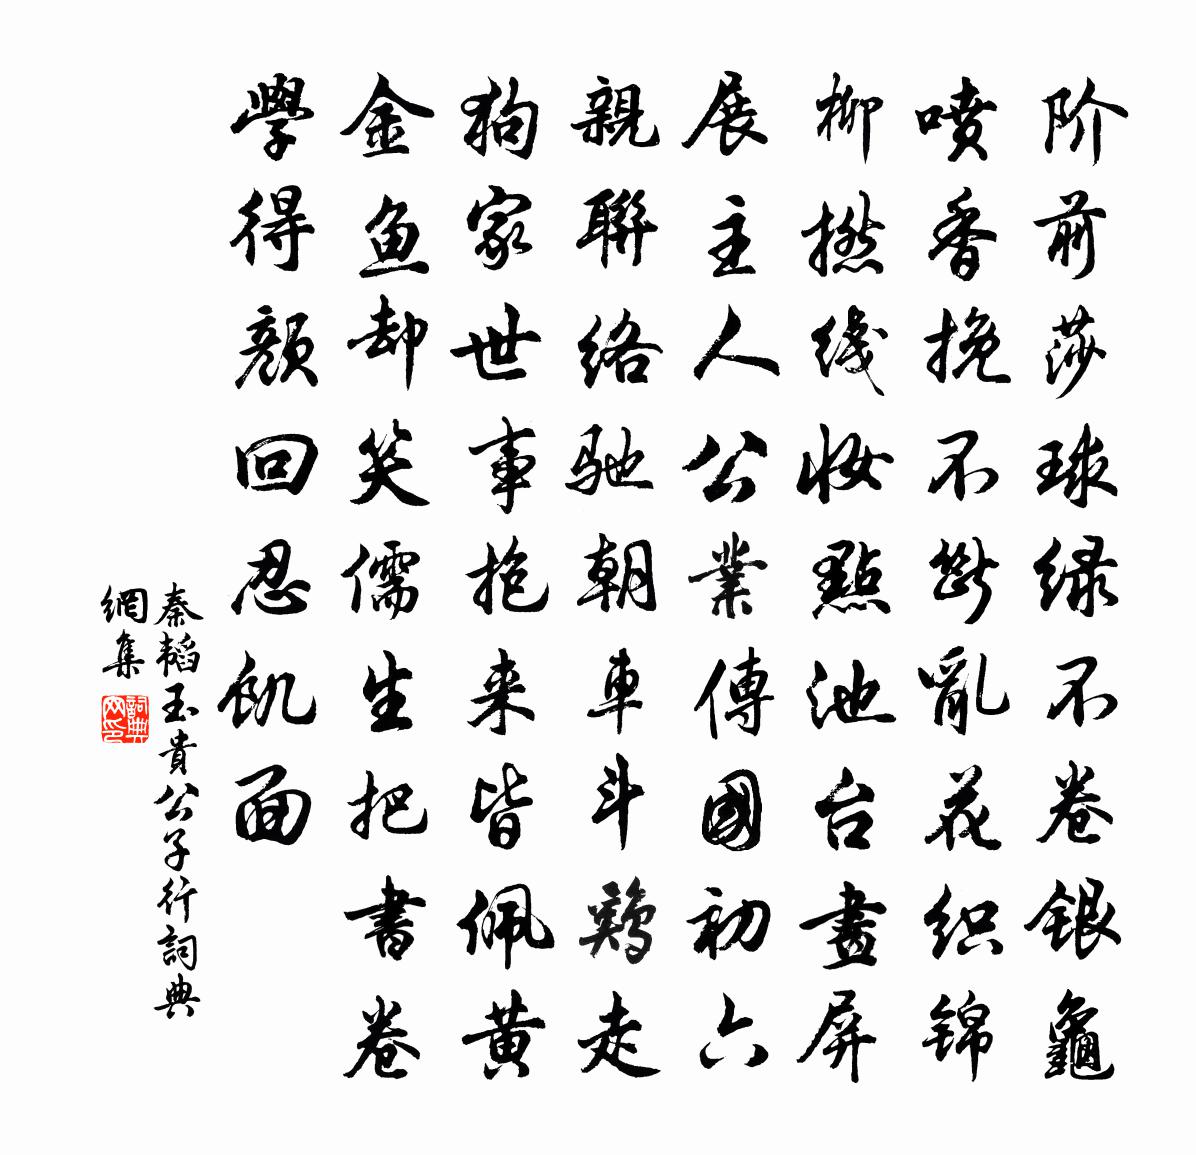 阶前莎球緑不卷银龜
喷香挽不断亂花织锦
柳撚线妆點池台畫屏
展主人公業傳國初六
親聯絡馳朝車斗鷄走
狗家世事抱来皆佩黄
金鱼却笑儒生把書卷
學得颜回忍飢面
秦韬玉貴公子行詞典
網集
詞典网